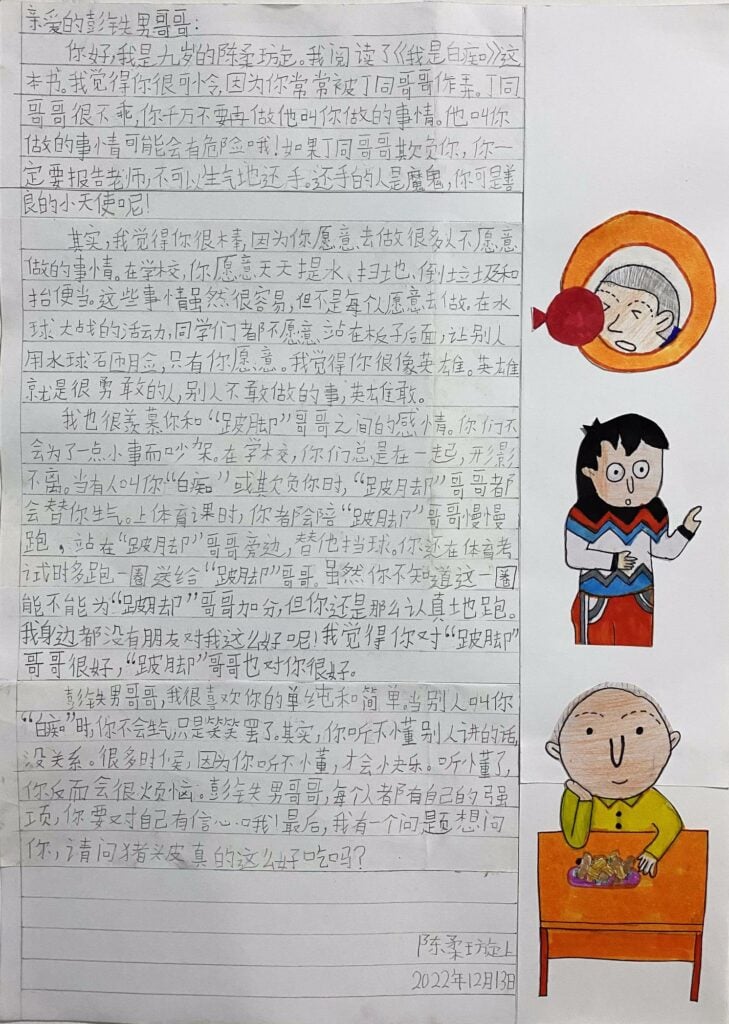 亲爱的彭铁男哥哥：
你好，我是九岁的陈柔玏旋。我阅读了《我是白痴》这
本书。我觉得你很可怜，因为你常常被丁同哥哥作弄。丁同
哥哥很不乖，你千万不要再做他叫你做的事情。他叫你
做的事情可能会有危险哦！如果丁同哥哥欺负你，你一
定要报告老师，不可以生气地还手。还手的人是魔鬼，你可是善
良的小天使呢！
其实，我觉得你很棒，因为你愿意去做很多人不愿意
做的事情。在学校，你愿意天天提水、扫地、倒垃圾和
抬便当。这些事情虽然很容易，但不是每个人愿意去做。在水
球大战的活动，同学们都不愿意站在板子后面，让别人
用水球砸脸，只有你愿意。我觉得你很像英雄。英雄
就是很勇敢的人，别人不敢做的事，英雄敢。
我也很羡慕你和“跛脚”哥哥之间的感情。你们不
会为了一点小事而吵架。在学校，你们总是在一起，形影
不离。当有人叫你“白痴”或欺负你时，“跛脚”哥哥都
会替你生气。上体育课时，你都会陪“跛脚”哥哥慢慢
跑，站在“跛脚”哥哥旁边，替他挡球。你还在体育考
试时多跑一圈送给“跛脚”哥哥。虽然你不知道这一圈
能不能为“跛脚”哥哥加分，但你还是那么认真地跑。
我身边都没有朋友对我这么好呢！我觉得你对“跛脚”
哥哥很好，“跛脚”哥哥也对你很好。
彭铁男哥哥，我很喜欢你的单纯和简单。当别人叫你
“白痴”时，你不会生气，只是笑笑罢了。其实，你听不懂别人讲的话，
没关系。很多时候，因为你听不懂，才会快乐。听懂了，
你反而会很烦恼。彭铁男哥哥，每个人都有自己的强
项，你要对自己有信心哦！最后，我有一个问题想问
你，请问猪头皮真的这么好吃吗？
陈柔玏旋上
2022年12月13日